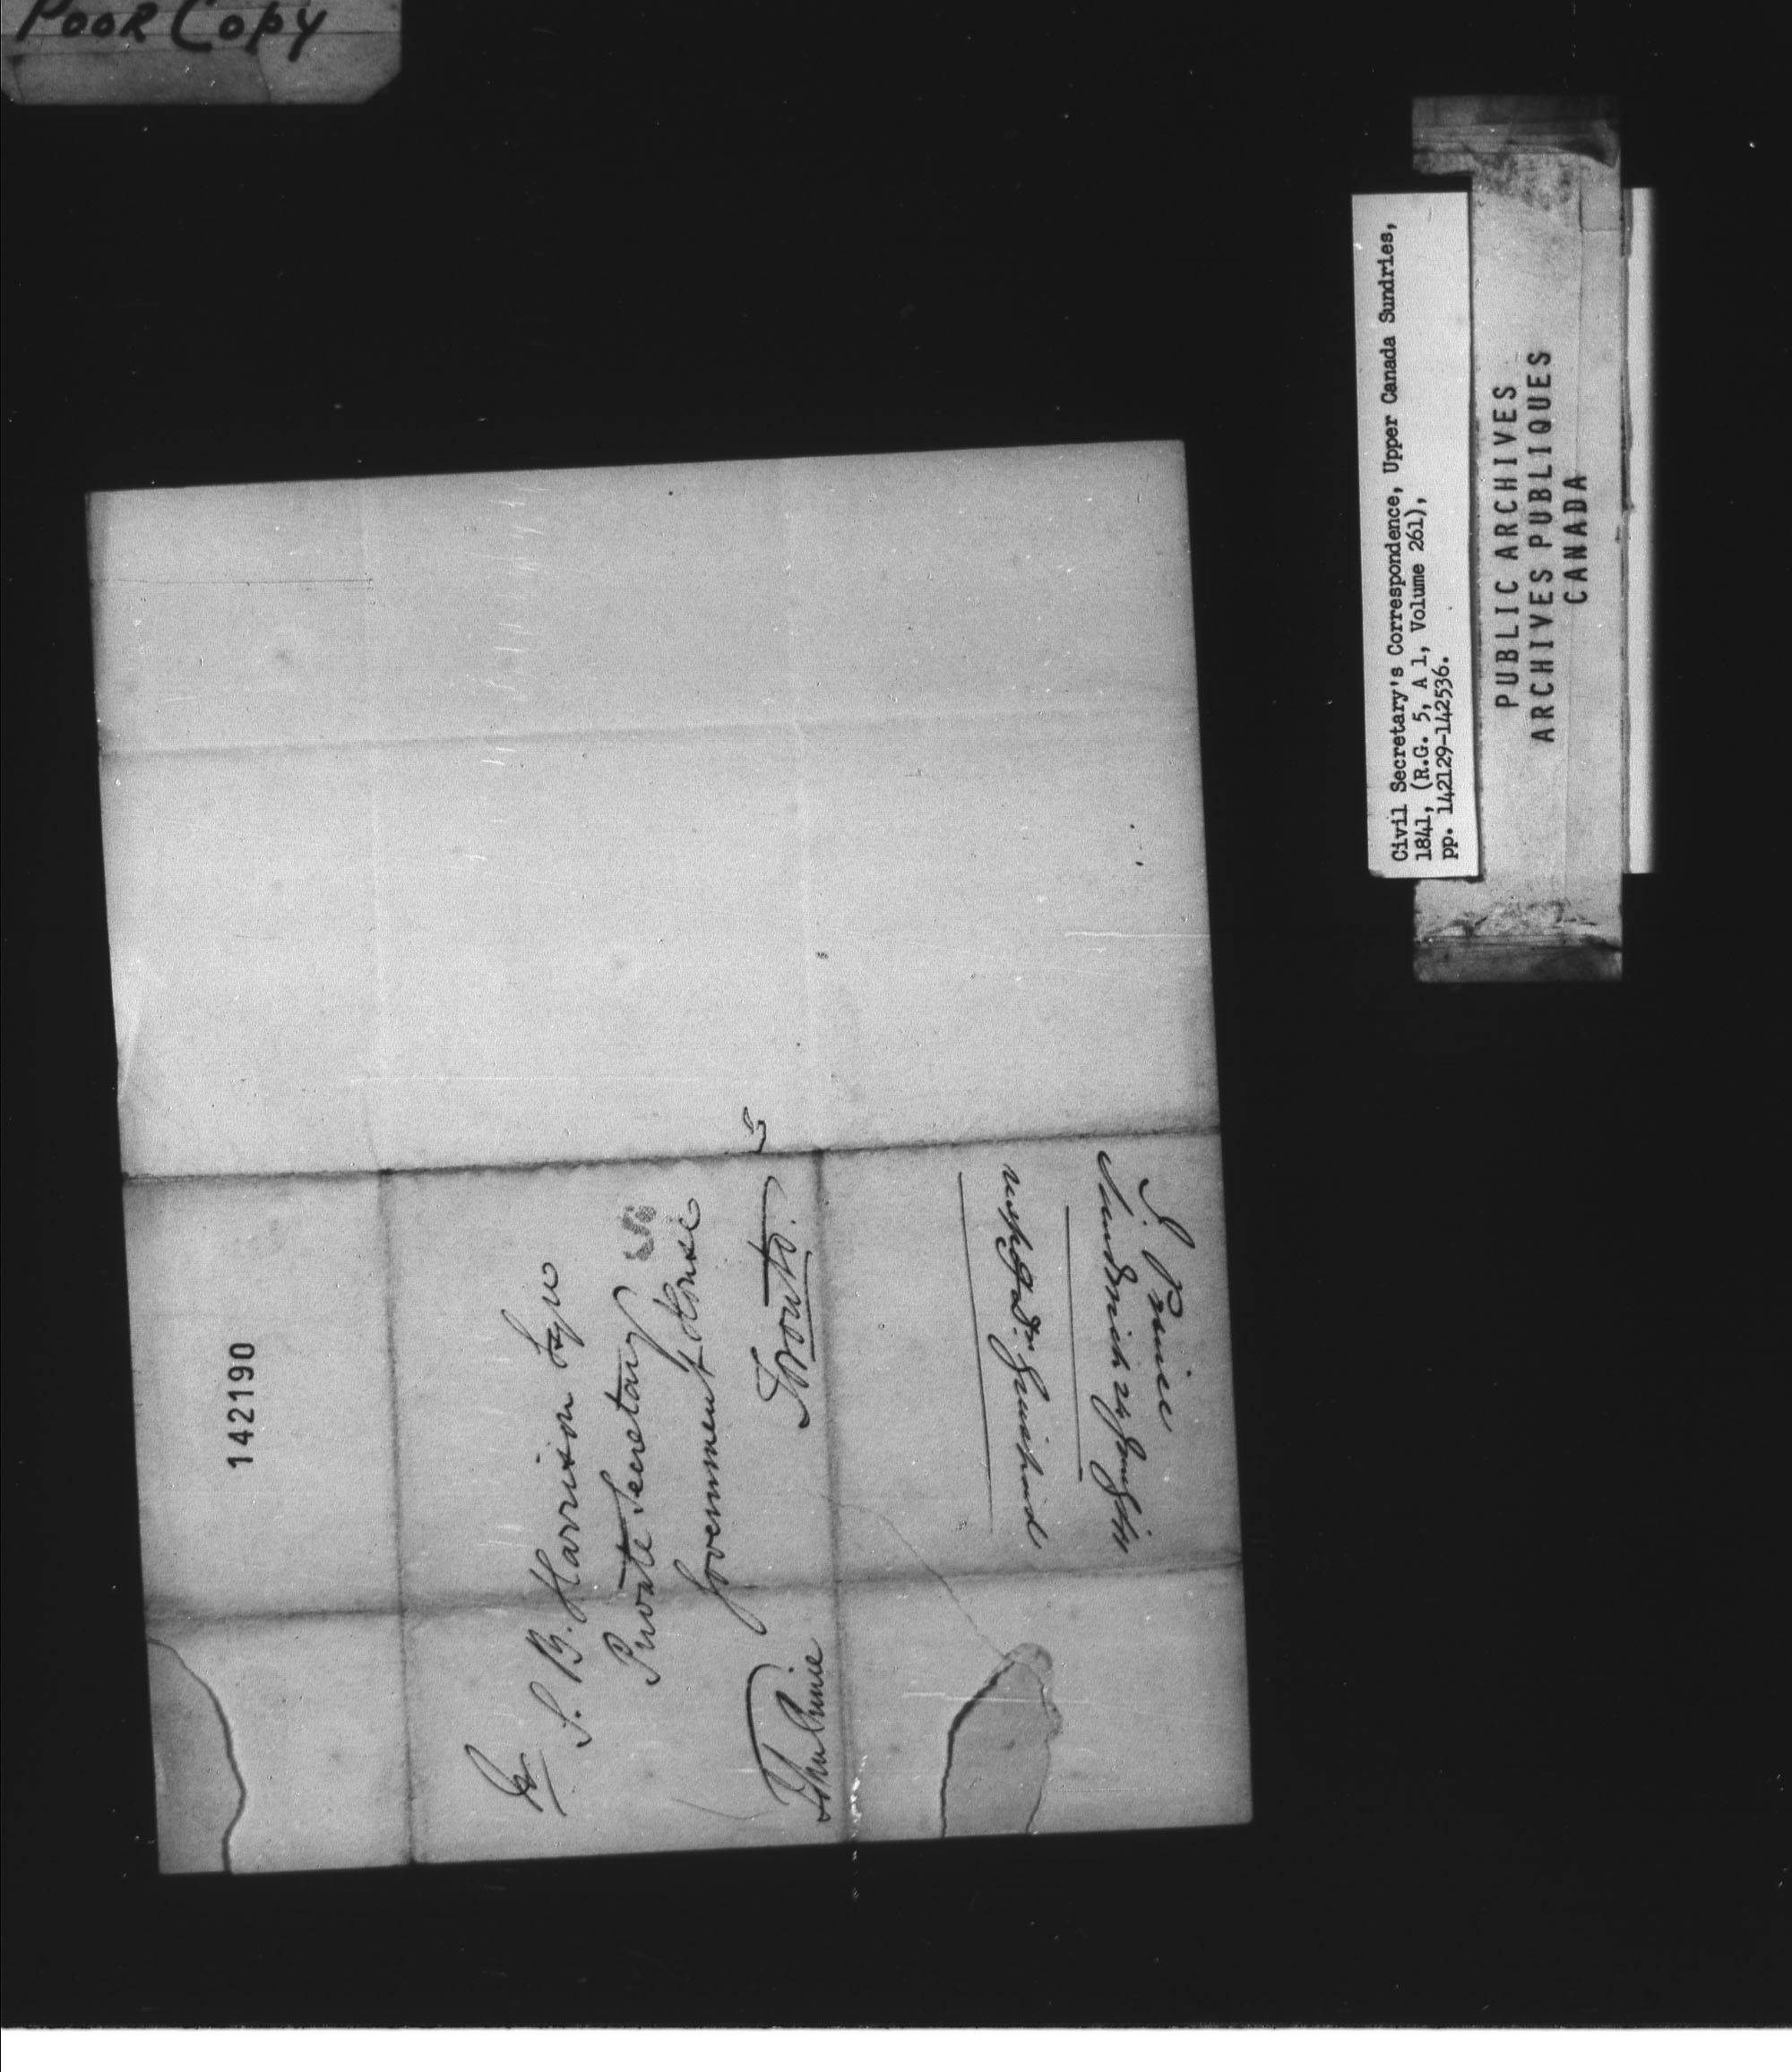 Poor Copy
Civil Secretary's Correspondence, Upper Canada Sundries,
1841, (R.G. 5, A 1, Volume 261),
pp. 142129-142536.
PUBLIC ARCHIVES
ARCHIVES PUBLIQUES
CANADA
142190
To
S. B. Harrison Esqre
Private Secretary
Government House
Toronto.
J. Prince
Sandwich 24